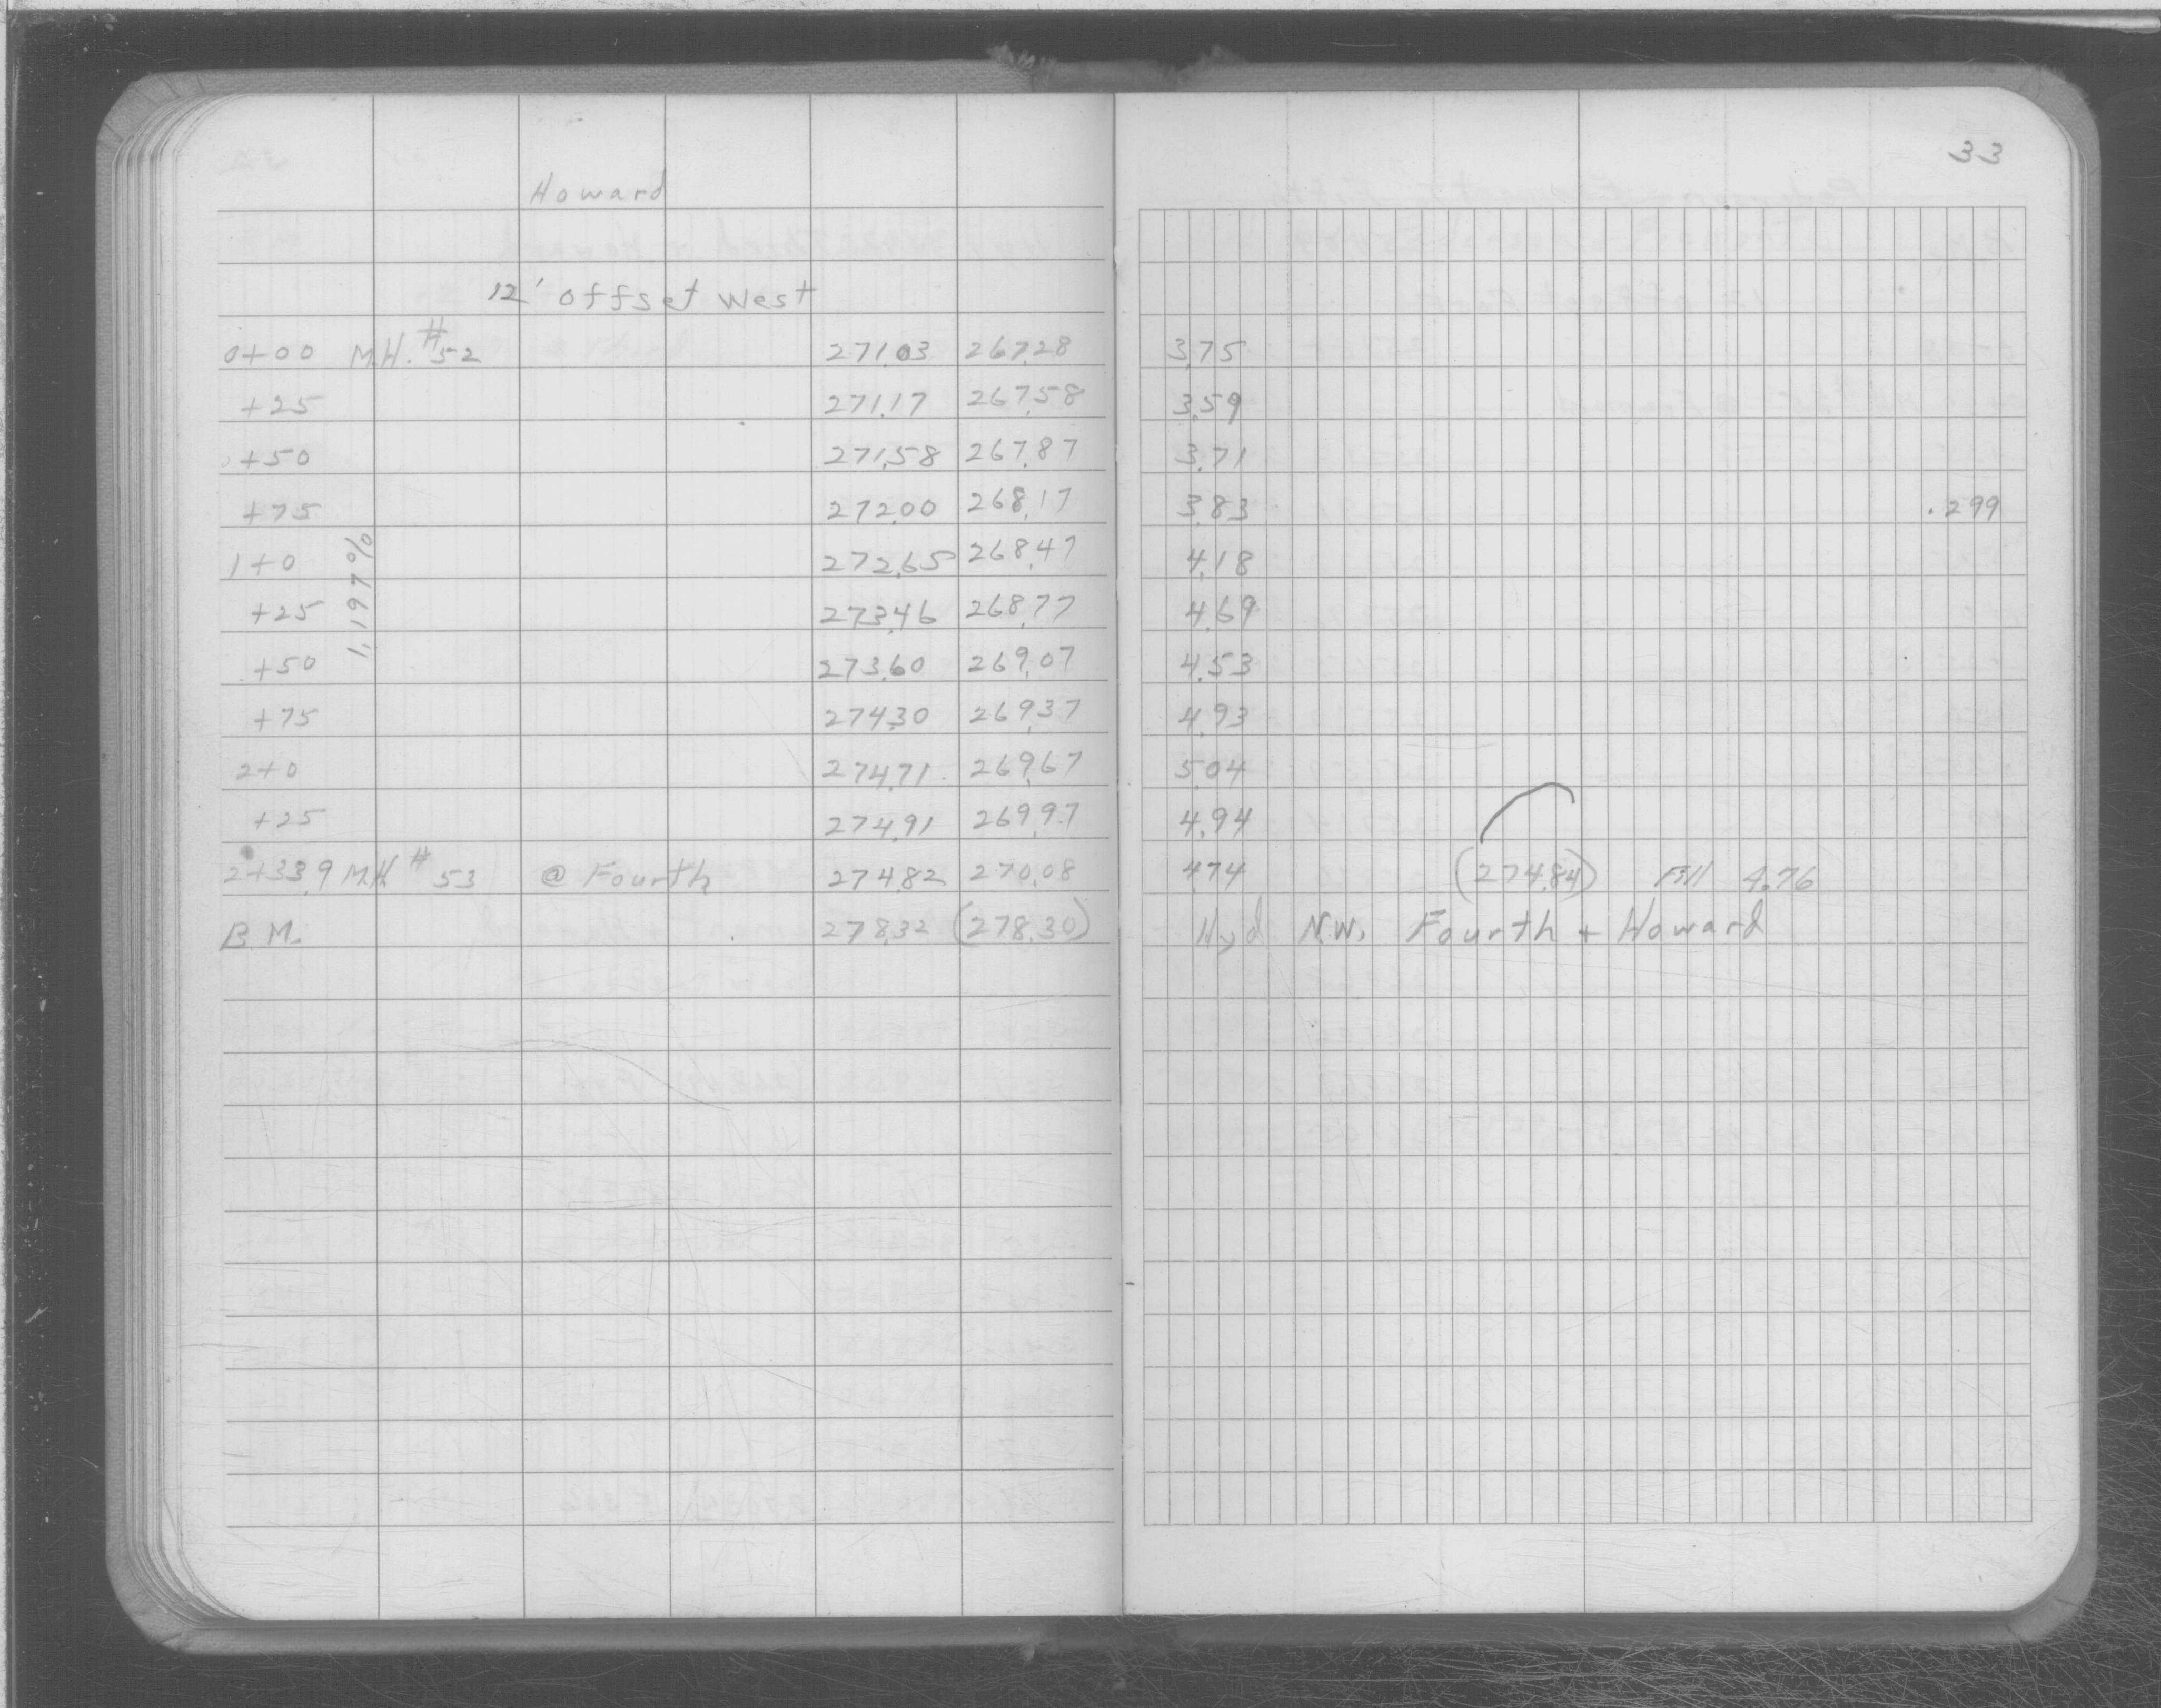 33
Howard
12' offset West
0+00 M.H. #52 271.03 267.28 3.75
+25 271.17 267.58 3.59
+50 271.58 267.87 3.71
+75 272.00 268.17 3.83 .299
1+0 272.65 268.47 4.18
1.197%
+25 273.46 268.77 4.69
+50 273.60 269.07 4.53
+75 274.30 269.37 4.93
2+0 274.71 269.67 5.04
+25 274.91 269.97 4.94
2+33.9 M.H. #53 @ Fourth 274.82 270.08 4.74 (274.84) Fill 4.76
B.M. 278.32 (278.30) Hyd N.W. Fourth + Howard